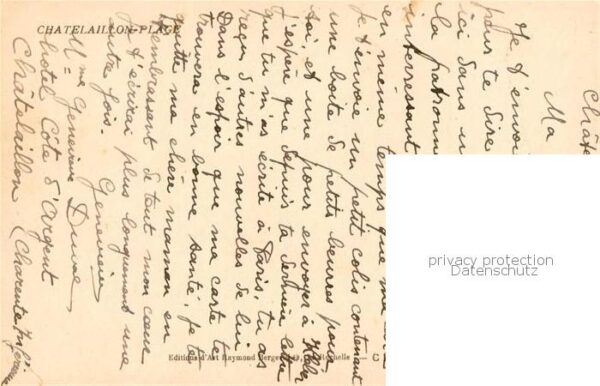 CHATELAILLON-PLAGE
Châte
Ma
Je t'envoi
pour te dire
ici dans u
la patronne
intéressant
en même temps que ma
Je t'envoie un petit colis contenant
une boite de petits beurres pour
toi, et une pour envoyer à
J'espère que depuis ta dernière lettre
que tu m'as écrite à Paris, tu as
reçu d'autres nouvelles de lui
Dans l'espoir que ma carte te
trouvera en bonne santé, je te
quitte ma chère maman en
t'embrassant de tout mon cœur
Je t'écrirai plus longuement une
autre fois.
Geneviève
Mme Geneviève Duval
hotel Côte d'Argent
Châtelaillon (Charente Inférieure)
Editions d'Art Raymond Berge
privacy protection
Datenschutz